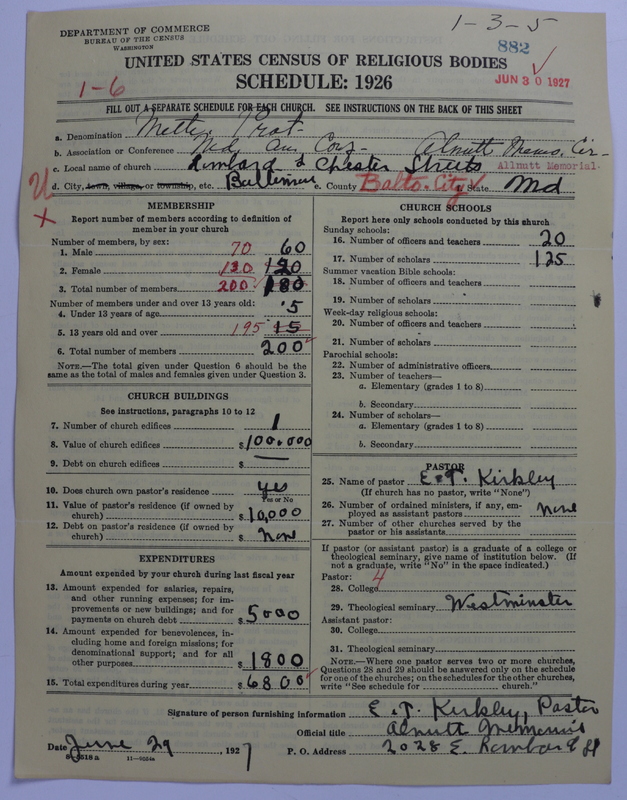 1-3-5
DEPARTMENT OF COMMERCE
BUREAU OF THE CENSUS
WASHINGTON
882
UNITED STATES CENSUS OF RELIGIOUS BODIES
JUN 30 1927
1-6
SCHEDULE: 1926
FILL OUT A SEPARATE SCHEDULE FOR EACH CHURCH. SEE INSTRUCTIONS ON THE BACK OF THIS SHEET
a. Denomination Meth. Prot.
b. Association or Conference Md. Ann Con. Alnutt Memo. Cir-
c. Local name of church Lombard & Chester Streets Allnutt Memorial.
U
d. City, town, village, or township, etc. Baltimore e. County Balto. City f. State Md
X
MEMBERSHIP
Report number of members according to definition of
member in your church
Number of members, by sex:
1. Male 70 60
2. Female 130 120
3. Total number of members 200 180
Number of members under and over 13 years old:
4. Under 13 years of age 5
5. 13 years old and over 195 15
6. Total number of members 200
NOTE.—The total given under Question 6 should be
same as the total of males and females given under Question 3.
CHURCH BUILDINGS
See instructions, paragraphs 10 to 12
7. Number of church edifices 1
8. Value of church edifices $100,000
9. Debt on church edifices $ —
10. Does church own pastor's residence yes
Yes or No
11. Value of pastor's residence (if owned by
church) $10,000
12. Debt on pastor's residence (if owned by
church) $ None
EXPENDITURES
Amount expended by your church during last fiscal year
13. Amount expended for salaries, repairs,
and other running expenses; for im-
provements or new buildings; and for
payments on church debt $5000
14. Amount expended for benevolences, in-
cluding home and foreign missions; for
denominational support; and for all
other purposes $1800
15. Total expenditures during year $6800
CHURCH SCHOOLS
Report here only schools conducted by this church
Sunday schools:
16. Number of officers and teachers 20
17. Number of scholars 125
Summer vacation Bible schools:
18. Number of officers and teachers
19. Number of scholars
Week-day religious schools:
20. Number of officers and teachers
21. Number of scholars
Parochial schools:
22. Number of administrative officers
23. Number of teachers—
a. Elementary (grades 1 to 8)
b. Secondary
24. Number of scholars—
a. Elementary (grades 1 to 8)
b. Secondary
PASTOR
25. Name of pastor E. T. Kirkley
(If church has no pastor, write "None")
26. Number of ordained ministers, if any, em-
ployed as assistant pastors None
27. Number of other churches served by the
pastor or his assistants
If pastor (or assistant pastor) is a graduate of a college or
theological seminary, give name of institution below. (If
not a graduate, write "No" in the space indicated.)
Pastor: 4
28. College
29. Theological seminary Westminster
Assistant pastor:
30. College
31. Theological seminary
NOTE.—Where one pastor serves two or more churches,
Questions 28 and 29 should be answered only on the schedule
for one of the churches; on the schedules for the other churches,
write "See schedule for church."
Signature of person furnishing information E. T. Kirkley, Pastor
Official title Alnutt Memorial
Date June 29, 1927 P. O. Address 2028 E. Lombard St
11—9524a